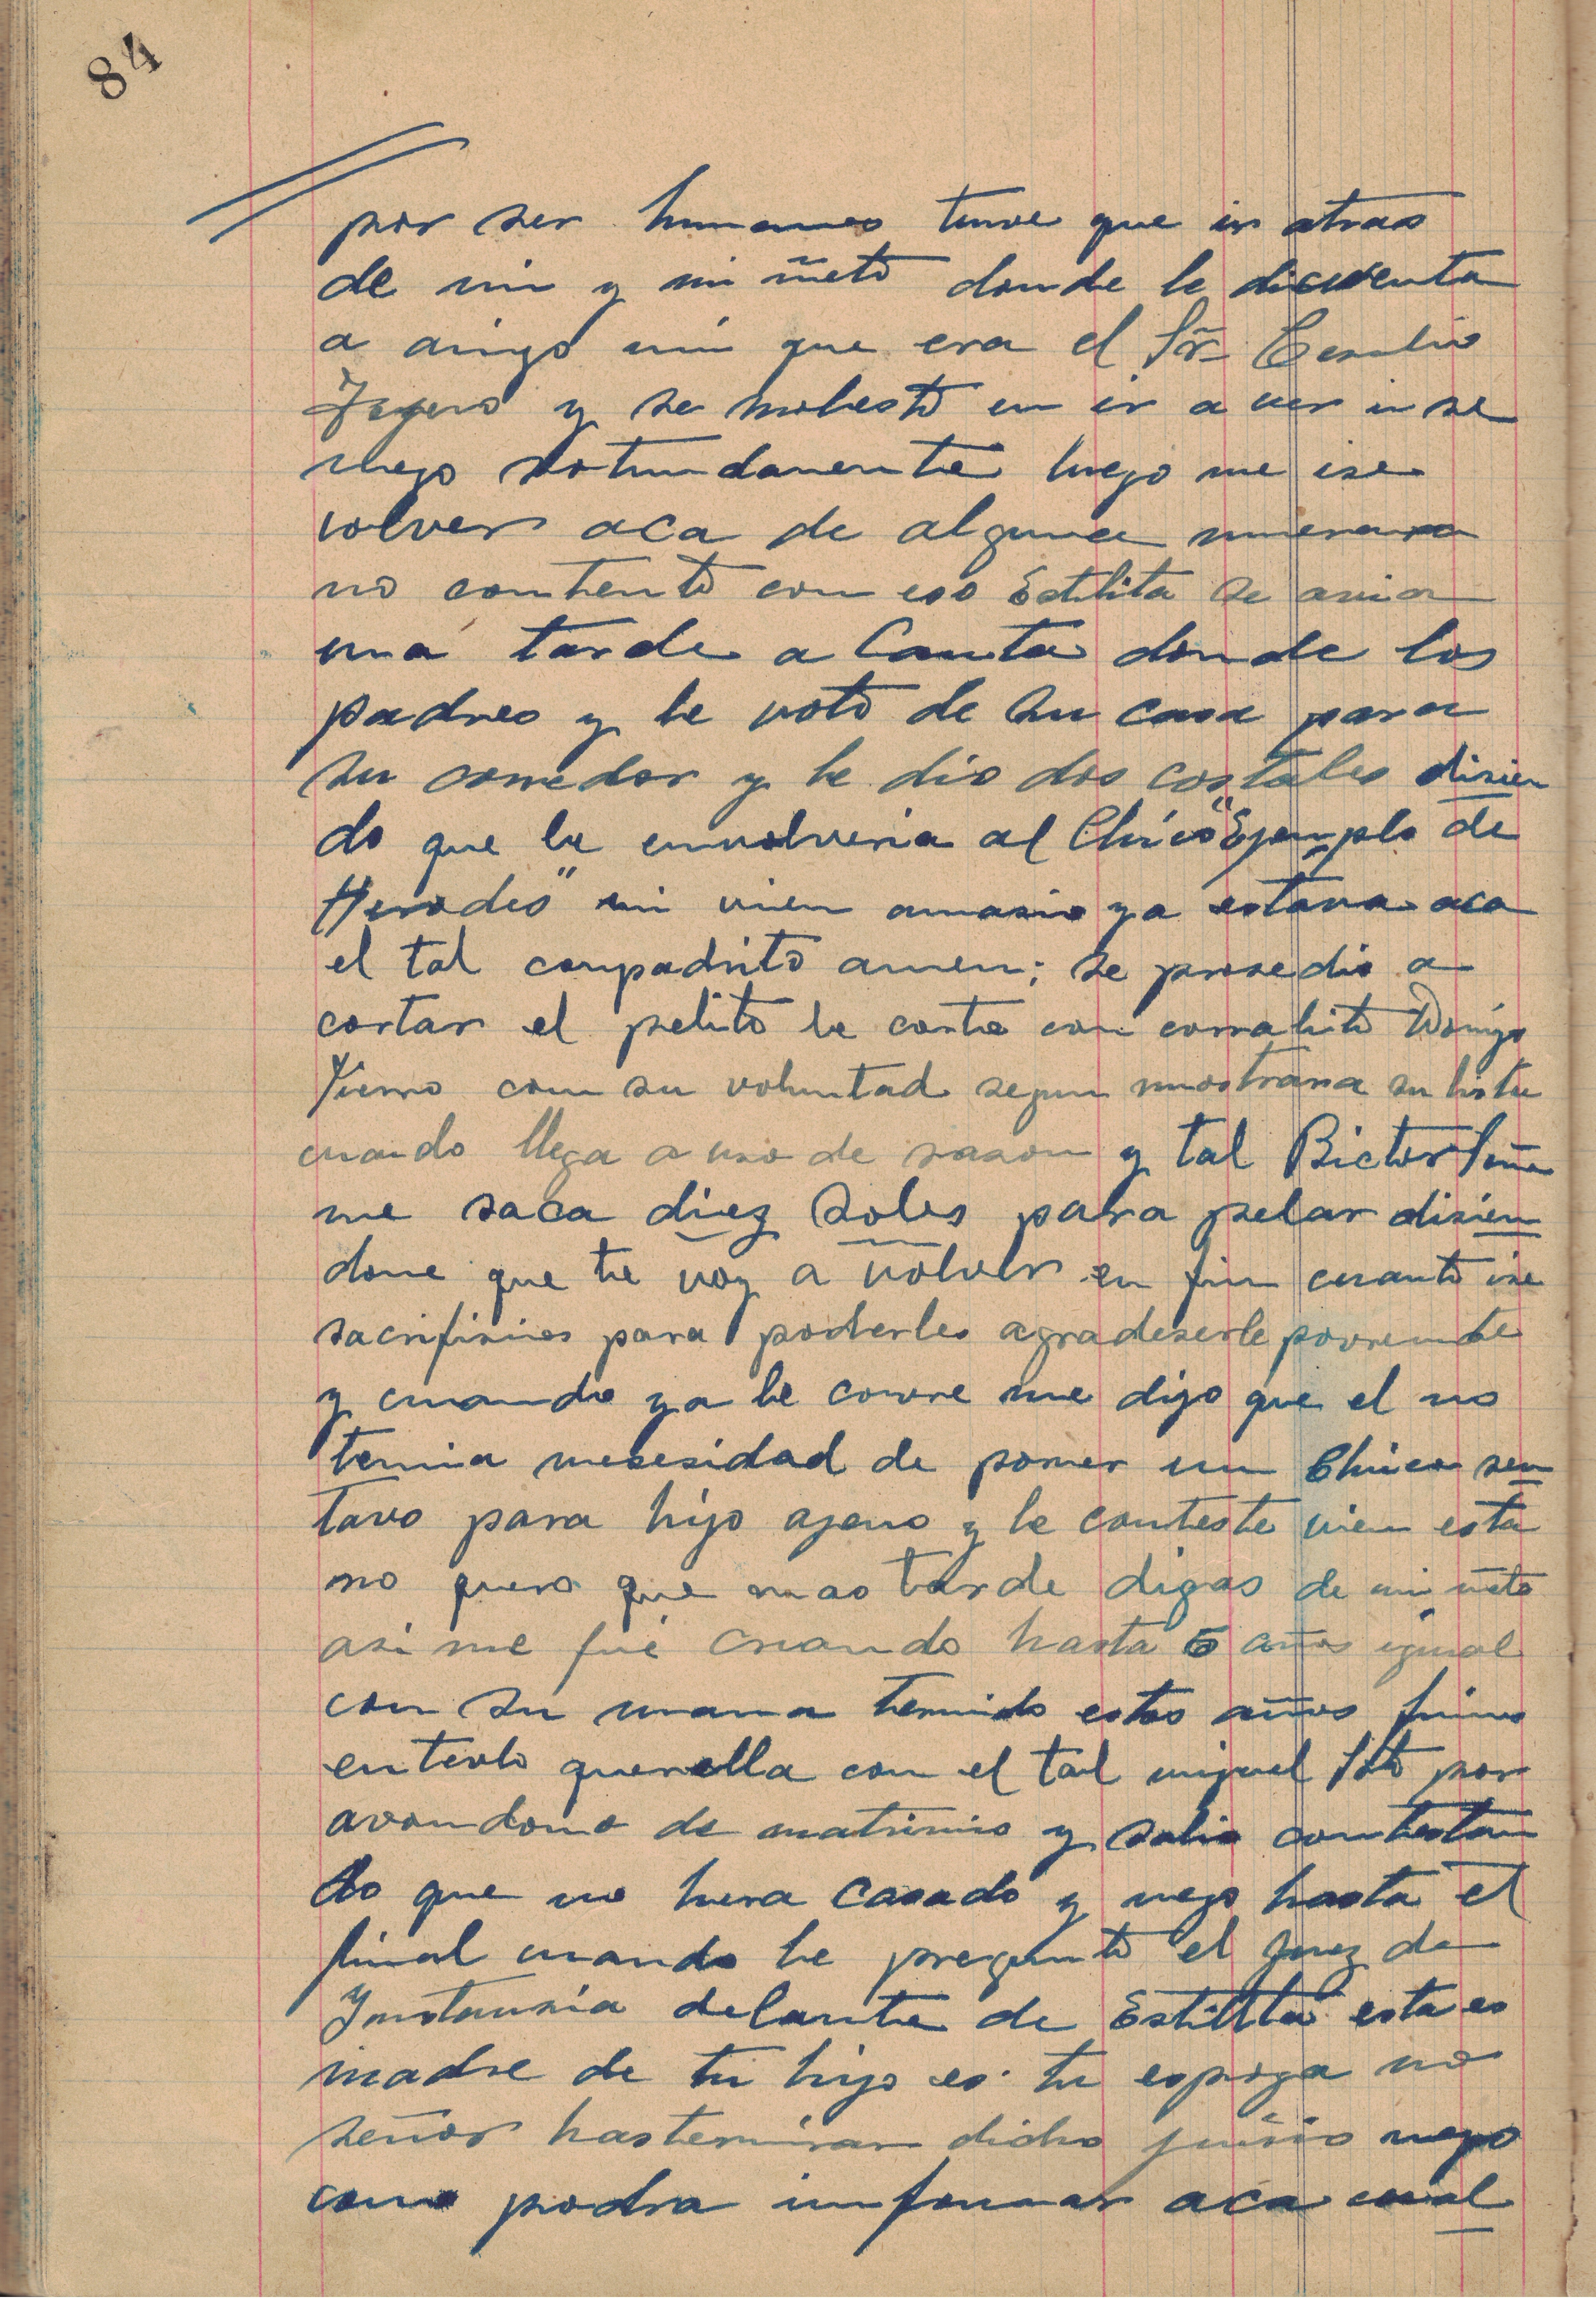 84
por ser humanos tuve que ir atras
de mi y mi ñeto donde le di cuenta
a amigo mio que era el Sr. Emilio
y se molesto en ir a ver i se
nego rotundamente luego me ise
volver aca de alguna manera
no contento con eso Estilita se avia
una tarde a Canta donde los
padres y le voto de su casa para
su comedor y le dio dos costales disien
do que le envolveria al Chico "Ejemplo de
Herodes" mi vien amasio ya estava aca
el tal compadrito amen; se prosedio a
cortar el pelito le corte con corralito
Yerno con su voluntad segun mostrara su lista
cuando llega a uso de rason y tal Bictor Peña
me saca diez soles para pelar disien
dome que te voy a volver en fin cuanto ise
sacrifisios para poderles agradeserle
y cuando ya le corre me dijo que el no
tenia nesesidad de poner un Chico sen
tavo para hijo ajeno y le conteste vien esta
no quero que mas tarde digas de mi ñeto
asi me fué criando hasta 5 años igual
con su mama tenido estos años
entavlo querella con el tal miguel Soto por
avandono de matrimio y salio contestan
do que no huera casado y nego hasta el
final cuando le pregunto el Juez de
Instansia delante de Estilita esta es
madre de tu hijo es tu espoza no
señor hasterminar dicho juisio nego
como podra imformar aca cual